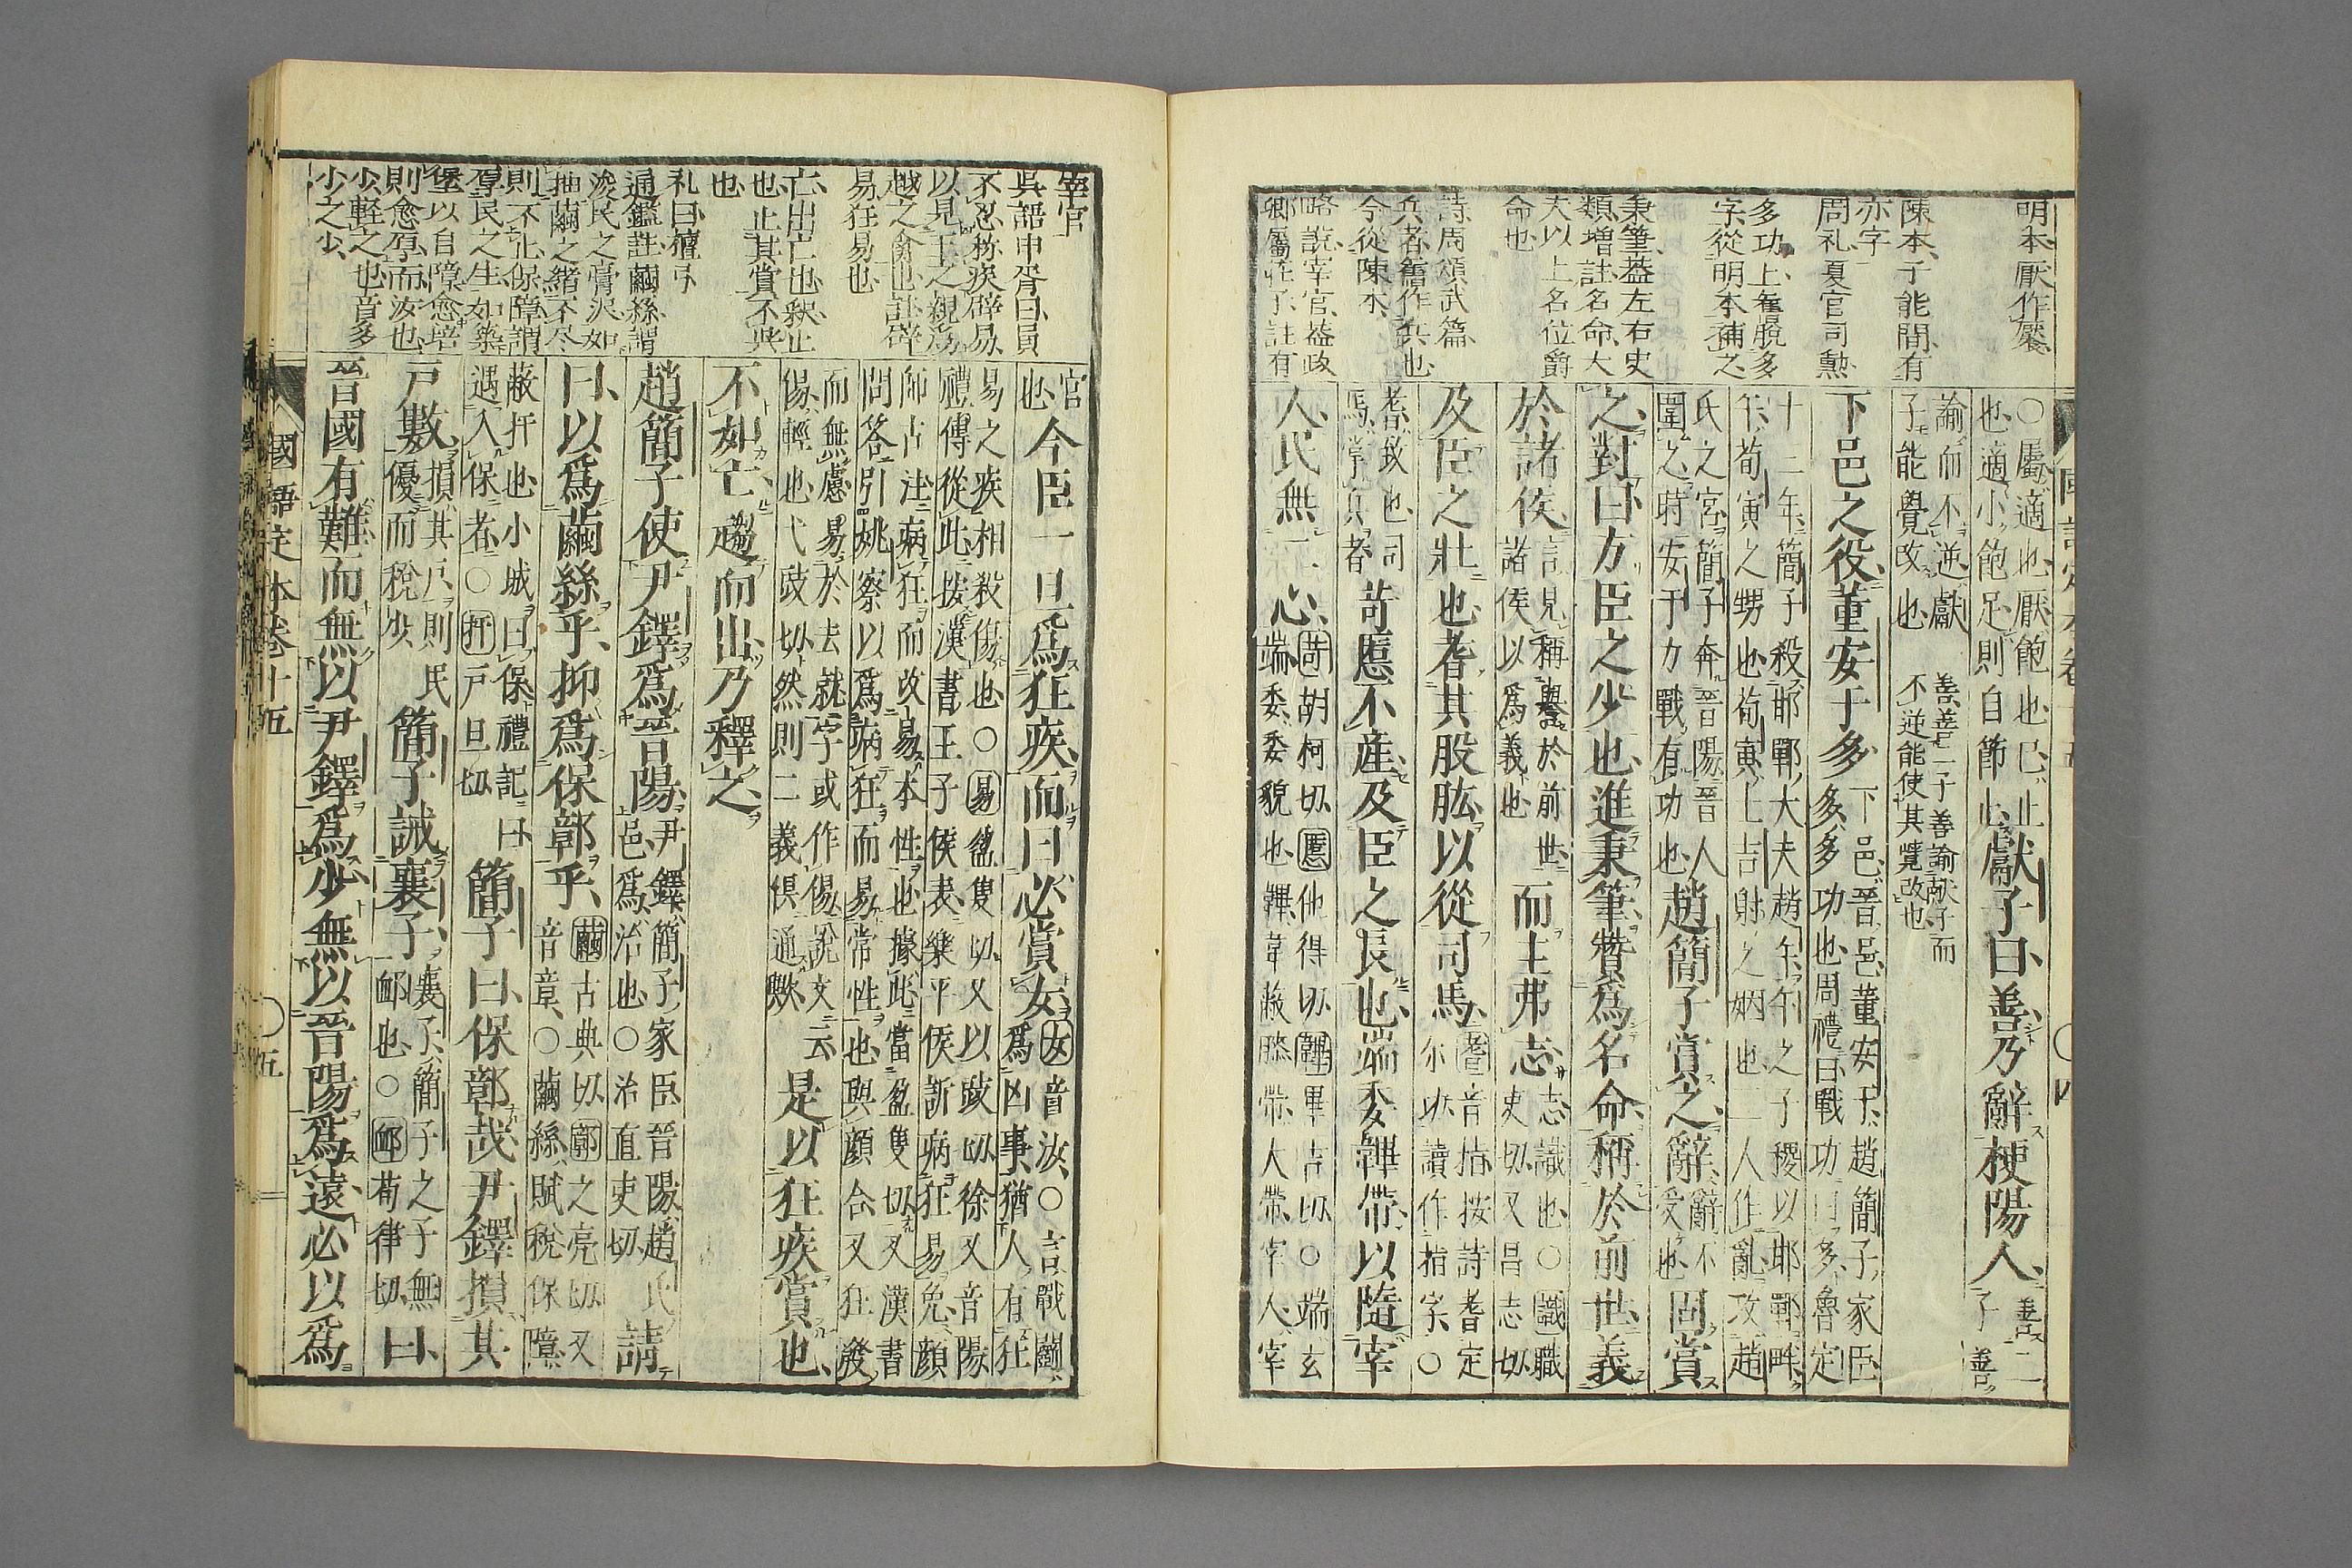 明本厭作饜
陳本子能間有
亦字
周礼夏官司勲
多功上舊脫多
字從明本補之
秉筆蓋左右史
類增註名命大
夫以上名位爵
命也
詩周頌武篇
兵者舊作兵也
今從陳本
略說宰官蓋政
卿屬在了註有
○屬適也厭飽也已止
也適小飽足則自節止
獻子曰善乃辭梗陽人
善二
子善
諭而不逆獻
子能覺改也
善善二子善諭獻子而
不逆能使其覺改也
下邑之役董安于多
下邑晉邑董安于趙簡子家臣
多多功也周禮曰戰功曰多魯定
十二年簡子殺邯鄲大夫趙午午之子稷以邯鄲畔
午荀寅之甥也荀寅士吉射之姻也二人作亂攻趙
氏之宮簡子奔晉陽晉人
圍之時安于力戰有功也
趙簡子賞之辭
辭不
受也
固賞
之對曰方臣之少也進秉筆贊爲名命稱於前世義
於諸侯
言見稱譽於前世
諸侯以爲義也
而主弗志
志識也○識職
吏切又昌志切
及臣之壯也耆其股肱以從司馬
耆音指按詩耆定
尔功讀作指字○
耆致也司
馬掌兵者
苛慝不產及臣之長也端委韠帶以隨宰
人民無二心
苛胡柯切慝他得切韠畢吉切○端玄
端委委貌也韠韋蔽膝帶大帶宰人宰
宰官
吳語申胥曰員
不忍称疾辟易
以見王之親爲
越之禽也註辟
易狂易也
亡出亡也釈止
也止其賞不與
也
礼曰檀弓
通鑑註繭絲謂
浚民之膏沢如
抽繭之緒不尽
則不止保障謂
厚民之生如築
堡以自障愈培
則愈厚而汝也
少輕之也音多
少之少
官
也
今臣一旦爲狂疾而曰必賞女
女音汝○言戰鬭
爲凶事猶人有狂
易之疾相殺傷也○易盈隻切又以豉切徐又音陽
禮傳從此按漢書王子侯表樂平侯訢病狂易免顏
師古注病狂而改易本性也據此當盈隻切又漢書
問答引姚察以爲病狂而易常性也與顏合又狂發
而無慮易於去就字或作傷說文云
傷輕也弋豉切然則二義俱通歟
是以狂疾賞也
不如亡趨而出乃釋之
趙簡子使尹鐸爲晉陽
尹鐸簡子家臣晉陽趙氏
邑爲治也○治直吏切
請
曰以爲繭絲乎抑爲保鄣乎
繭古典切鄣之亮切又
音章○繭絲賦稅保障
蔽扞也小城曰保禮記曰
遇入保者○扞戸旦切
簡子曰保鄣哉尹鐸損其
戸數
損其戸則民
優而稅少
簡子誡襄子
襄子簡子之子無
卹也○卹荀律切
曰
晉國有難而無以尹鐸爲少無以晉陽爲遠必以爲
國語定本卷十五
○五